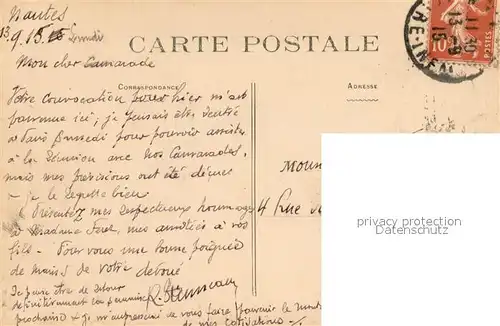 Nantes
13.9.15 Lundi
CARTE POSTALE
Mon cher Camarade
CORRESPONDANCE
ADRESSE
Votre convocation pour hier m'est
parvenue ici, je pensais être rentré
à Paris Samedi pour pouvoir assister
à la Réunion avec nos Camarades,
mais mes prévisions ont été déçues
je le regrette bien
Présentez mes respectueux hommages
à Madame, mes amitiés à vos
fils - Pour vous une bonne poignée
de mains de votre dévoué
Je pense être de retour
définitivement la semaine
prochaine & je m'empresserai de vous faire parvenir le
de mes cotisations
Moun
4 Rue
10
POSTES
13-9
15
privater Adressbereich
private Address Area